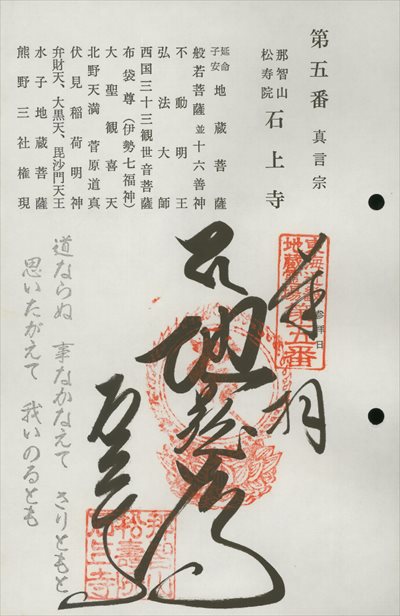 第五番 真言宗
那智山
松寿院 石上寺
延命
子安 地蔵菩薩
般若菩薩 並 十六善神
不動明王
弘法大師
西国三十三観世音菩薩
布袋尊（伊勢七福神）
大聖観喜天
北野天満 菅原道真
伏見稲荷明神
弁財天、大黒天、毘沙門天王
水子地蔵菩薩
熊野三社権現
奉拝
参拝日
第五番
地蔵
石上寺
道ならぬ 事なかなえて さりともと
思いたがえて 我いのるとも